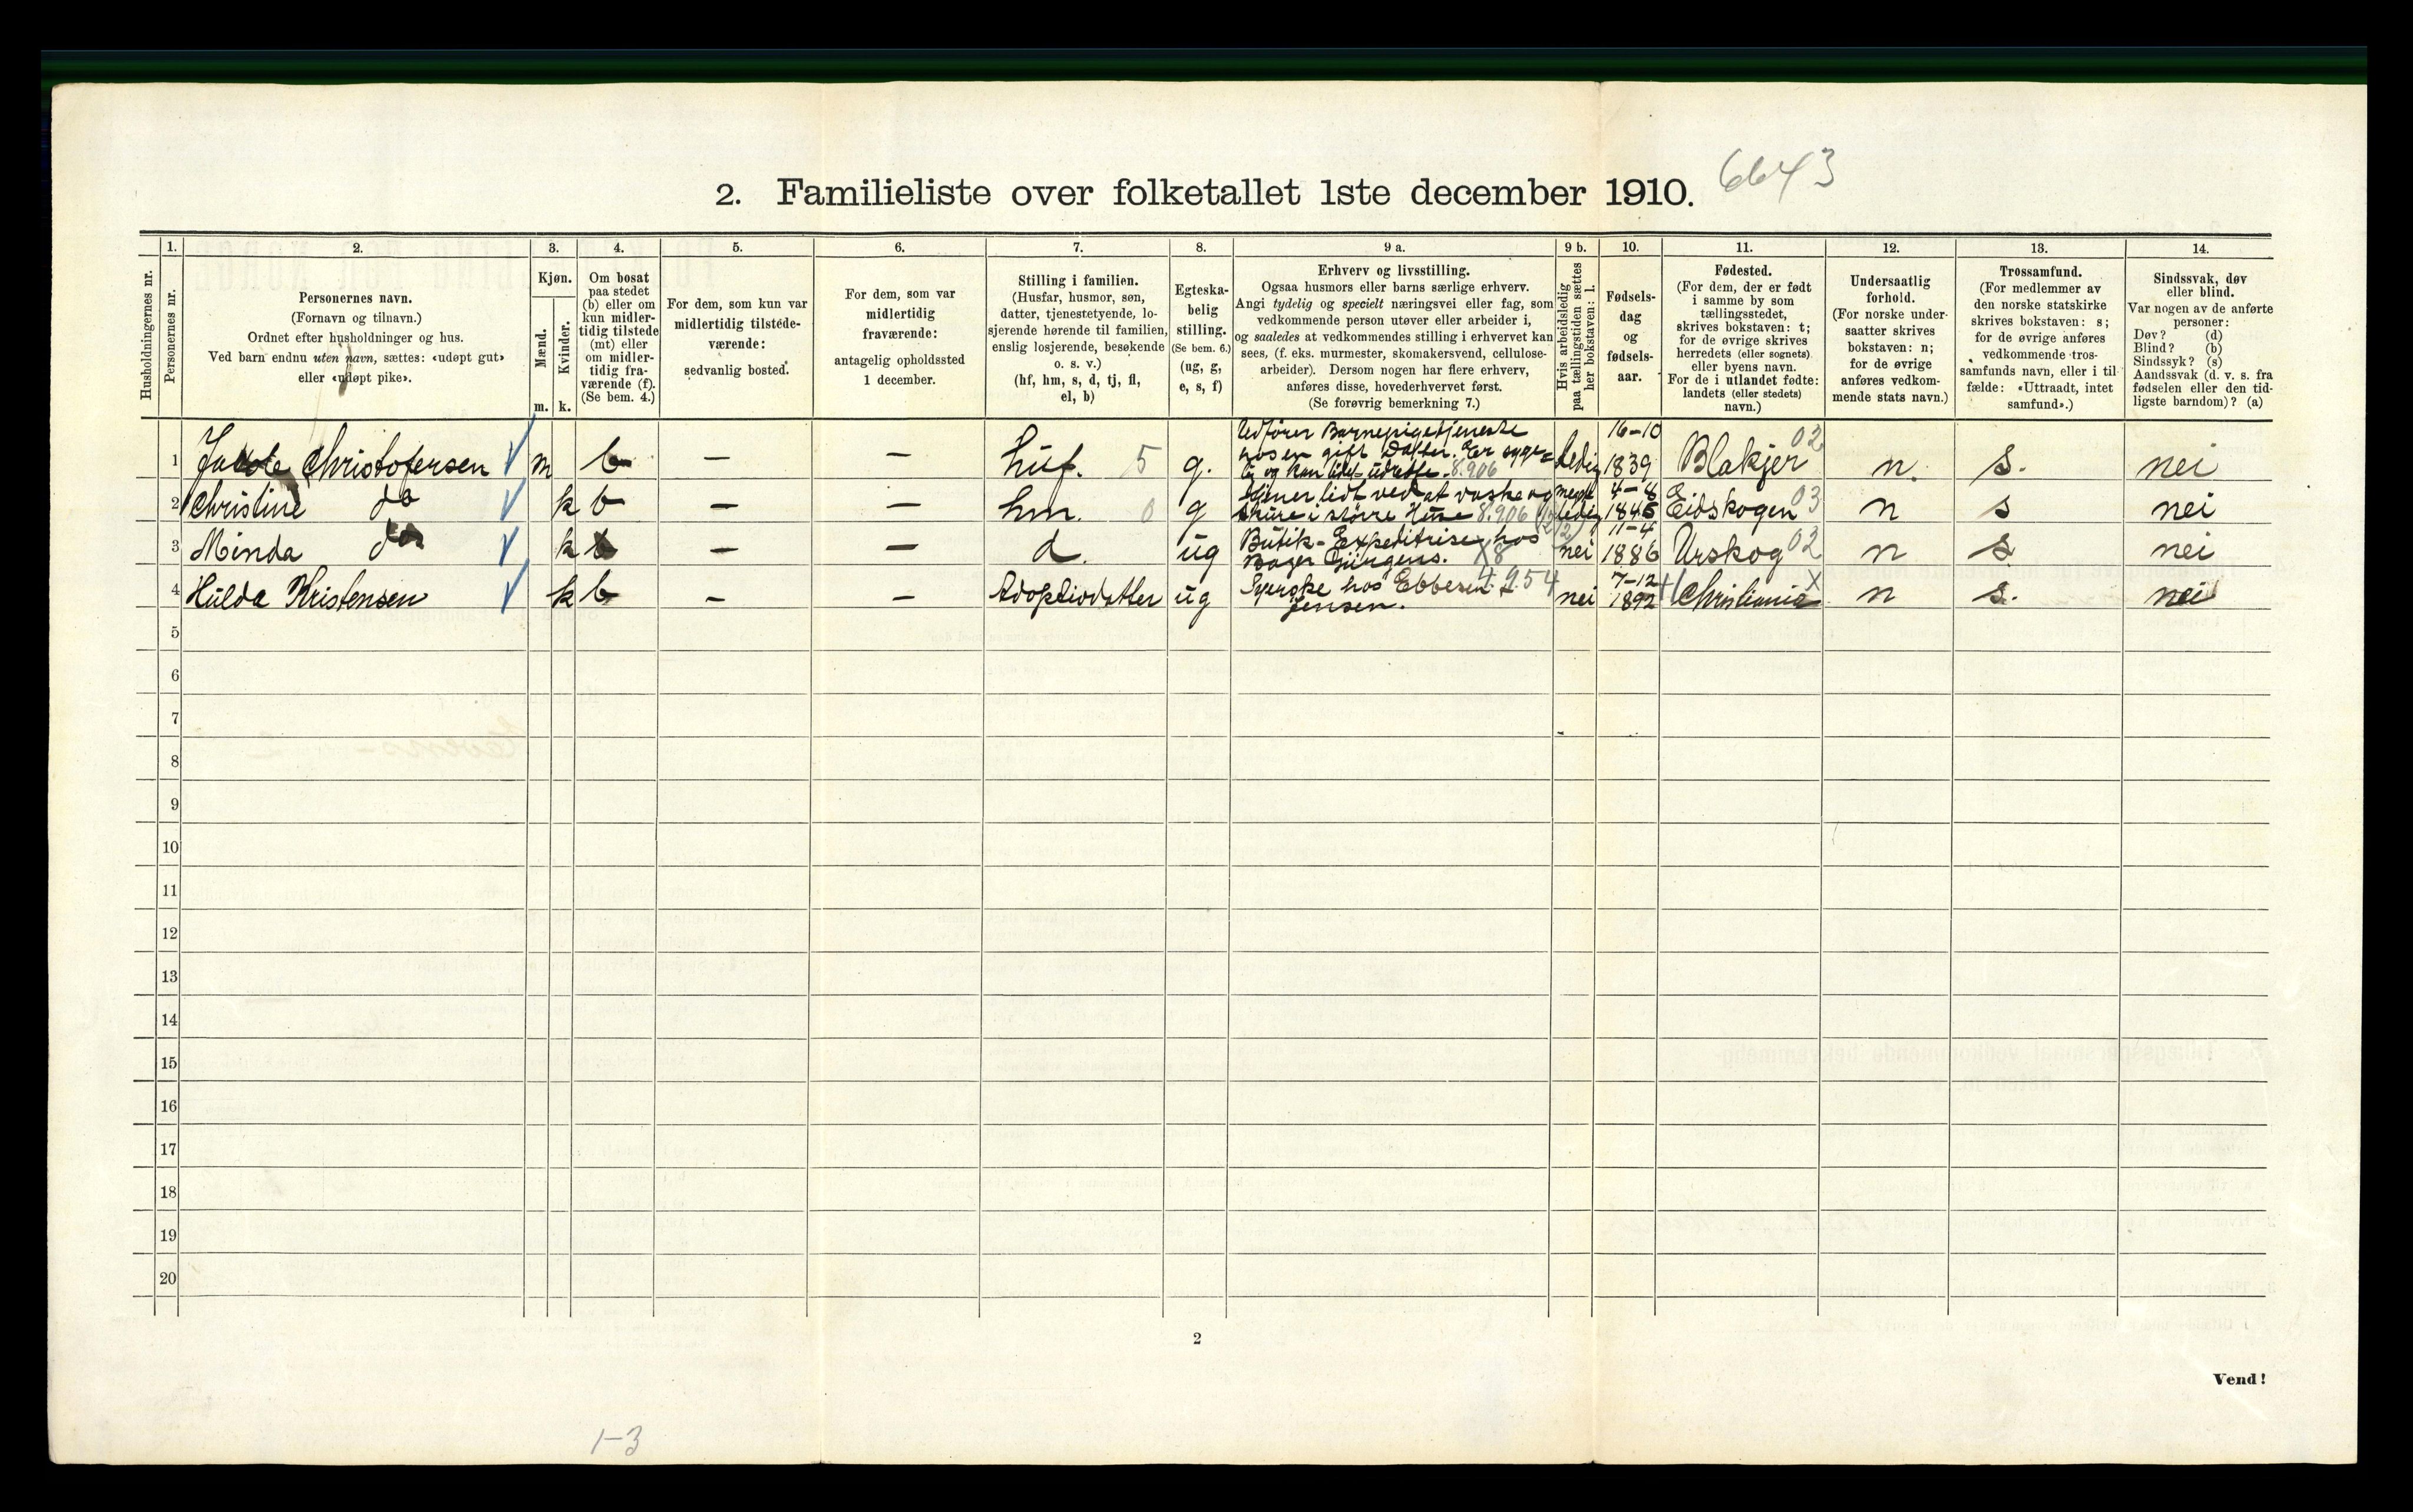 2. Familieliste over folketallet 1ste december 1910. 6643
Husholdningernes nr.
1.
Personernes nr.
2.
Personernes navn.
(Fornavn og tilnavn.)
Ordnet efter husholdninger og hus.
Ved barn endnu uten navn, sættes: «udøpt gut»
eller «udøpt pike».
3.
Kjøn.
Mænd.
m.
Kvinder.
k.
4.
Om bosat
paa stedet
(b) eller om
kun midler-
tidig tilstede
(mt) eller
om midler-
tidig fra-
værende (f).
(Se bem. 4.)
5.
For dem, som kun var
midlertidig tilstede-
værende:
sedvanlig bosted.
6.
For dem, som var
midlertidig
fraværende:
antagelig opholdssted
1 december.
7.
Stilling i familien.
(Husfar, husmor, søn,
datter, tjenestetyende, lo-
sjerende hørende til familien,
enslig losjerende, besøkende
o. s. v.)
(hf, hm, s, d, tj, fl,
el, b)
8.
Egteska-
belig
stilling.
(Se bem. 6.)
(ug, g,
e, s, f)
9 a.
Erhverv og livsstilling.
Ogsaa husmors eller barns særlige erhverv.
Angi tydelig og specielt næringsvei eller fag, som
vedkommende person utøver eller arbeider i,
og saaledes at vedkommendes stilling i erhvervet kan
sees, (f. eks. murmester, skomakersvend, cellulose-
arbeider). Dersom nogen har flere erhverv,
anføres disse, hovederhvervet først.
(Se forøvrig bemerkning 7.)
9 b.
Hvis arbeidsledig
paa tællingstiden sættes
her bokstaven: l.
10.
Fødsels-
dag
og
fødsels-
aar.
11.
Fødested.
(For dem, der er født
i samme by som
tællingsstedet,
skrives bokstaven: t;
for de øvrige skrives
herredets (eller sognets)
eller byens navn.
For de i utlandet fødte:
landets (eller stedets)
navn.)
12.
Undersaatlig
forhold.
(For norske under-
saatter skrives
bokstaven: n;
for de øvrige
anføres vedkom-
mende stats navn.)
13.
Trossamfund.
(For medlemmer av
den norske statskirke
skrives bokstaven: s;
for de øvrige anføres
vedkommende tros-
samfunds navn, eller i til-
fælde: «Uttraadt, intet
samfund».)
14.
Sindssvak, døv
eller blind.
Var nogen av de anførte
personer:
Døv? (d)
Blind? (b)
Sindssyk? (s)
Aandssvak (d. v. s. fra
fødselen eller den tid-
ligste barndom)? (a)
1 Christofersen m b — — huf. 5 g. Udfører Barnepigetjeneste
hos en gift Datter. Er syge-
lig og kan lidet udrette. 8.906 Ledig 16–10 1839 Blakjer 02 n. s. nei
2 Christine do k b — — hm. 0 g Tjener lidt ved at vaske og
skure i større Huse 8.906 ledig 4–8 1846 Eidskogen 03 n s nei
3 Minda do k b — — d. ug Butik-Expeditrise hos
Bager Gürgens. X8 nei 11–4 1886 Urskog 02 n s. nei
4 Hulda Kristensen k b — — Adoptivdatter ug Syerske hos Ebbesen &
Jensen. nei 7–12 1892 Christiania X n s. nei
5
6
7
8
9
10
11
12
13
14
15
16
17
18
19
20
2
Vend!
1–3